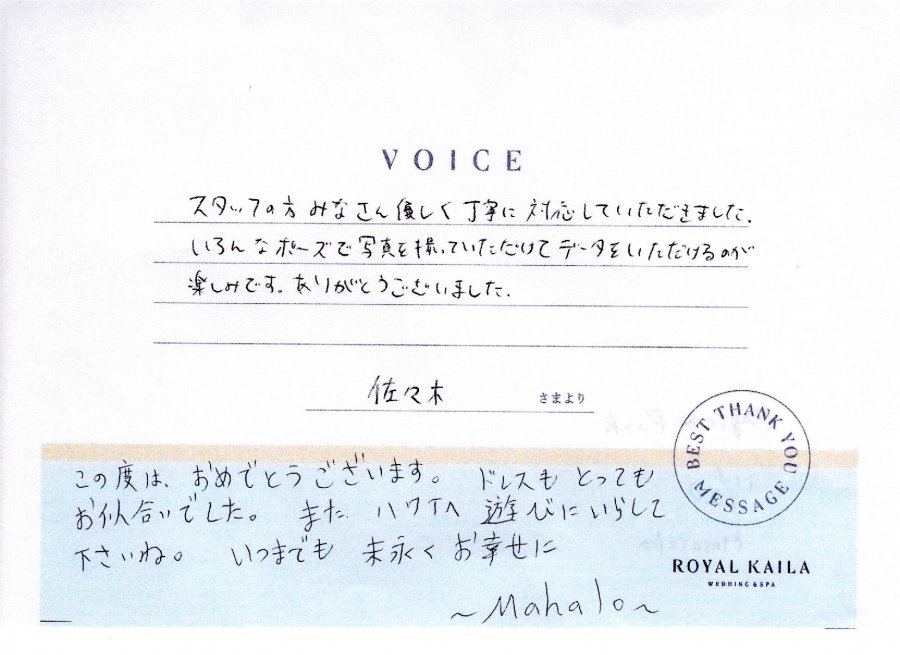 VOICE
スタッフの方みなさん優しく丁寧に対応していただきました。
いろんなポーズで写真を撮っていただけてデータをいただけるのが
楽しみです。ありがとうございました。
佐々木 さまより
BEST THANK YOU
MESSAGE
この度は、おめでとうございます。ドレスもとっても
お似合いでした。また ハワイへ 遊びにいらして
下さいね。いつまでも 末永く お幸せに
ROYAL KAILA
WEDDING & SPA
~Mahalo~